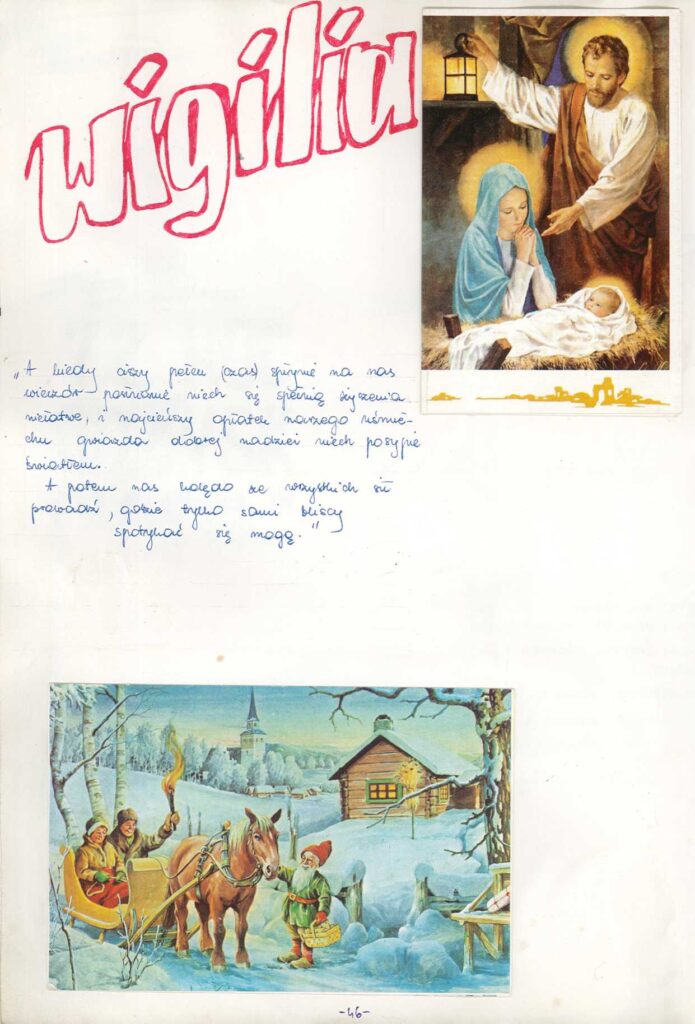 wigilia
„A kiedy ciszy pełen (czas) spłynie na nas
wieczór pośniemie niech się spełnią życzenia
niełatwe, i najcichszy opłatek naszego uśmie-
chu gwiazda dobrej nadziei niech posypie
światłem.
A potem nas kolędo ze wszystkich sił
prowadź, gdzie tylko sami bliscy
spotykać się mogą."
-46-